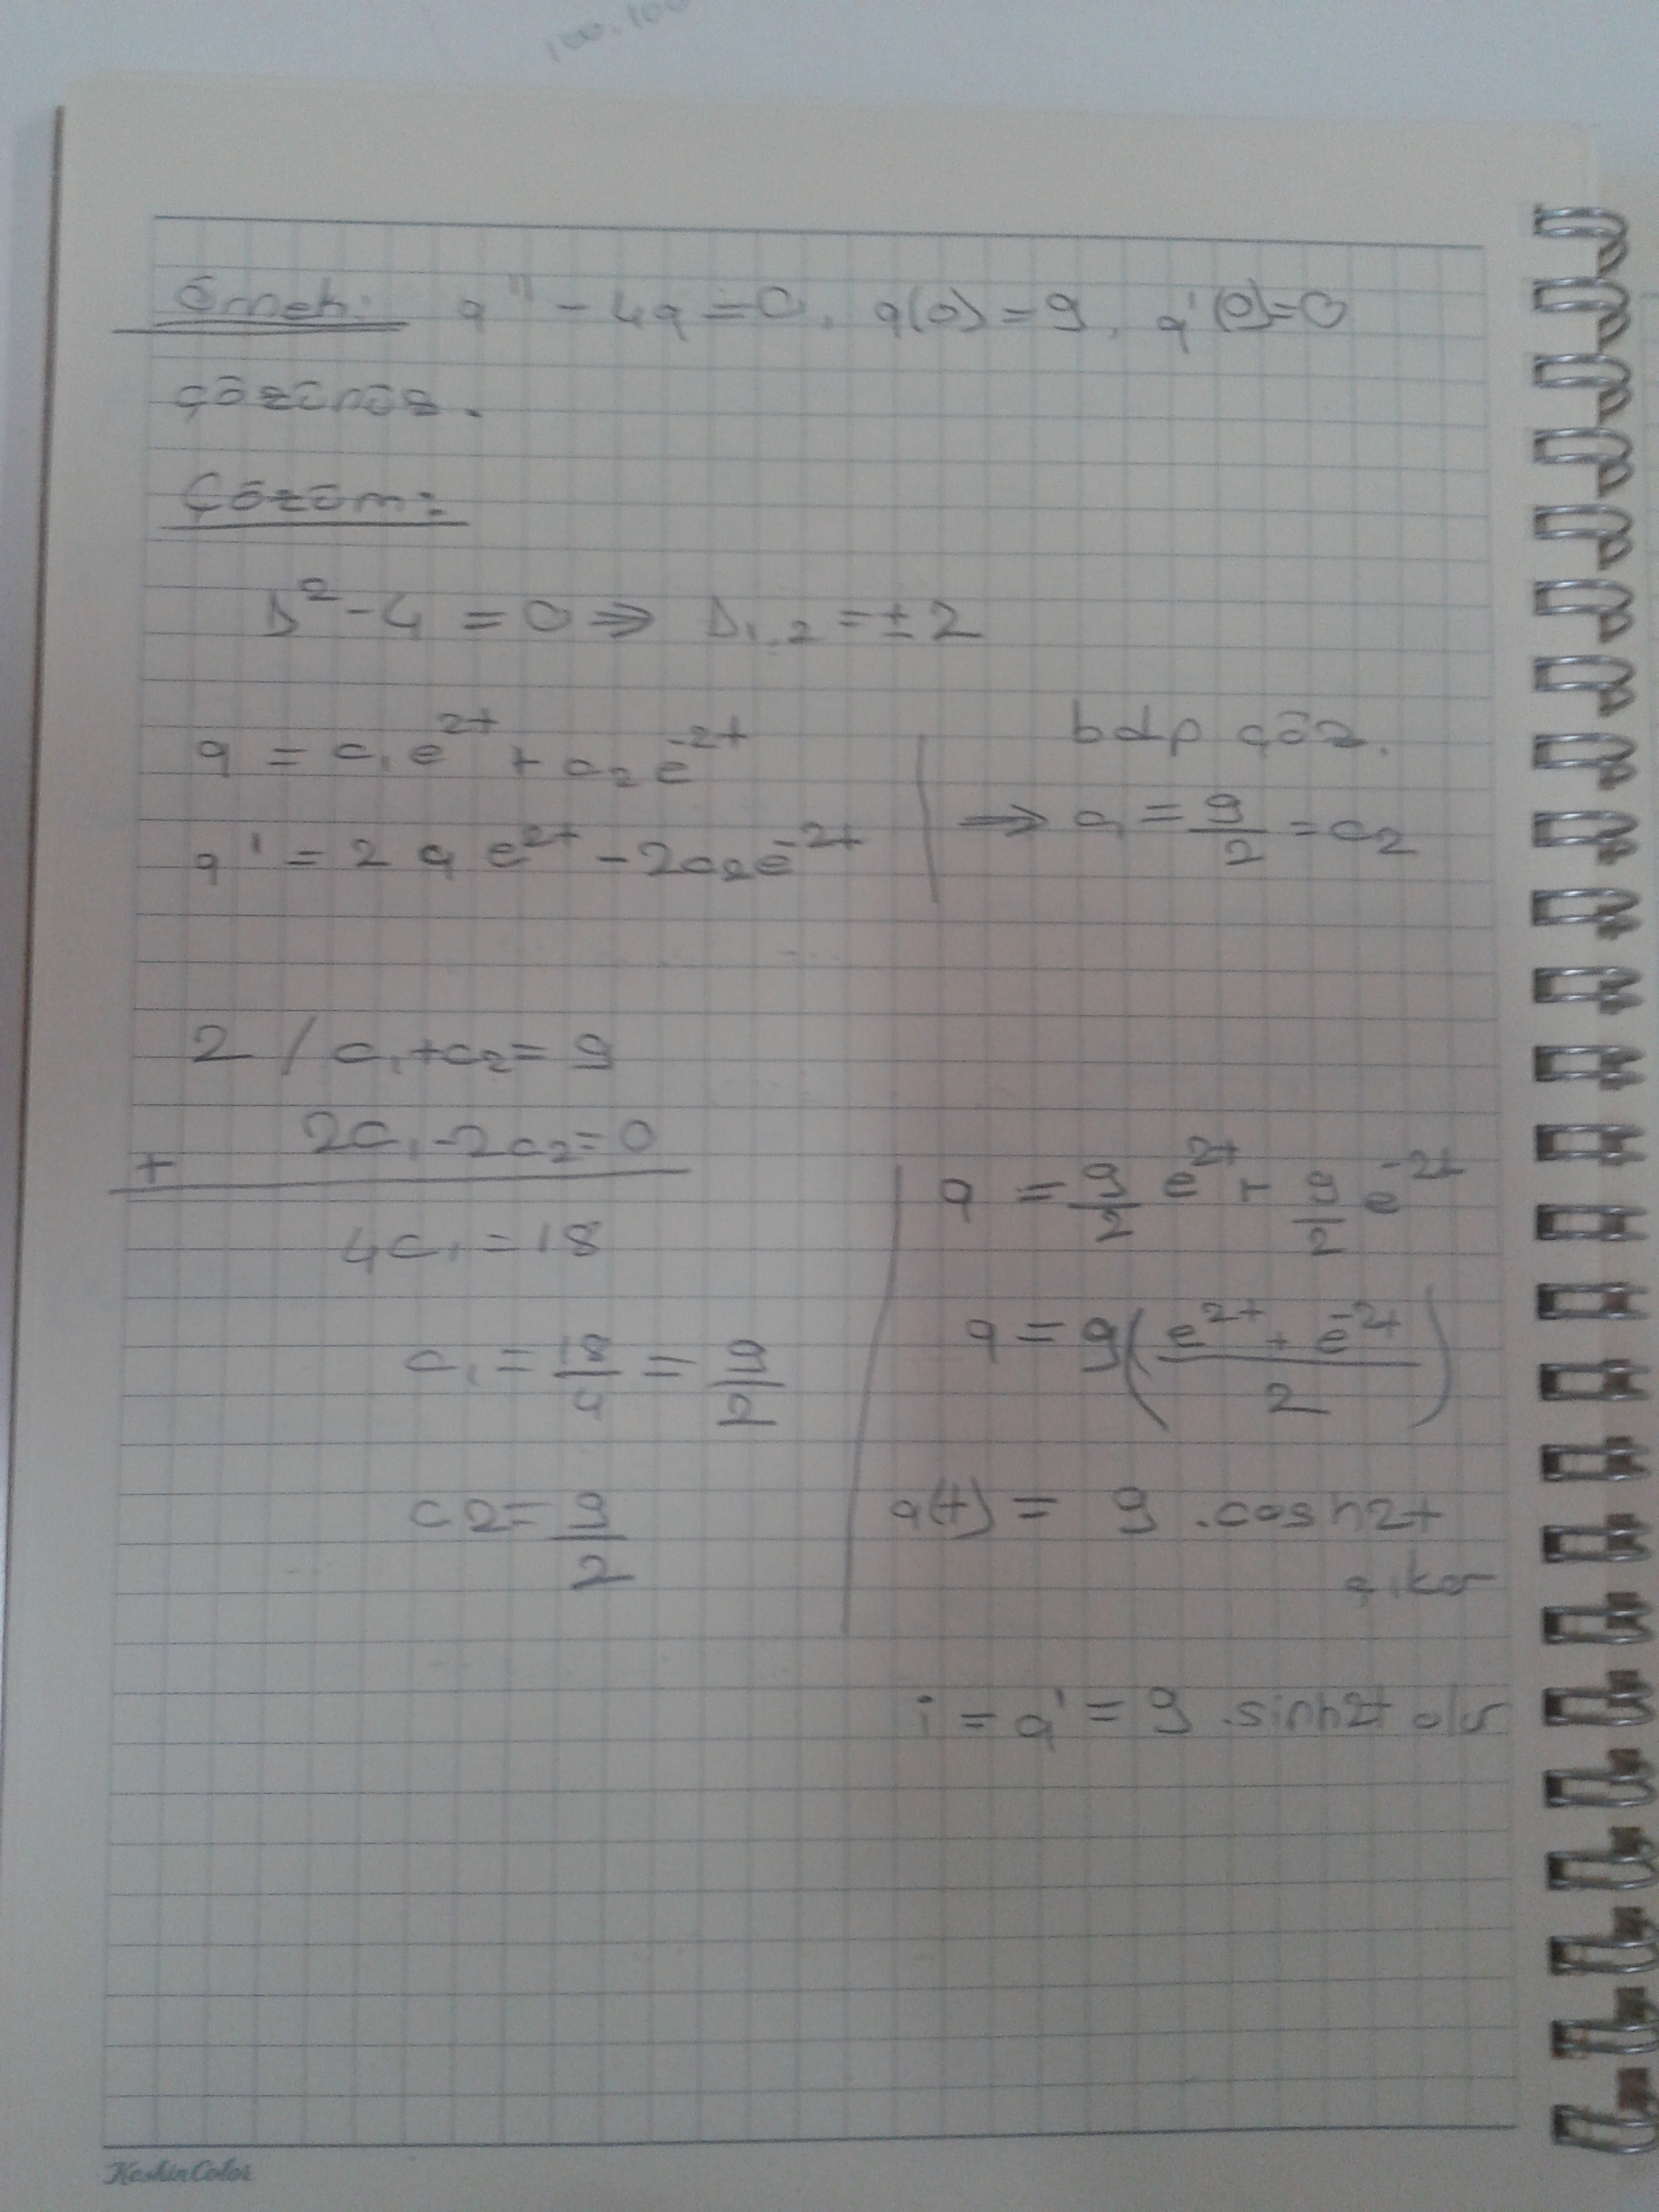 100.100
Örnek: q'' - 4q = 0, q(0) = 9, q'(0) = 0
çözünüz.
Çözüm:
D² - 4 = 0 ⇒ D₁,₂ = ± 2
q = c₁e^2t + c₂e^-2t
q' = 2c₁e^2t - 2c₂e^-2t
bdp çöz.
⇒ c₁ = 9/2 = c₂
2 / c₁ + c₂ = 9
2c₁ - 2c₂ = 0
+
4c₁ = 18
c₁ = 18/4 = 9/2
c2 = 9/2
q = 9/2 e^2t + 9/2 e^-2t
q = 9((e^2t + e^-2t)/2)
q(t) = 9 . cosh2t
çıkar
i = q' = 9 . sinh2t olur
KeskinColor